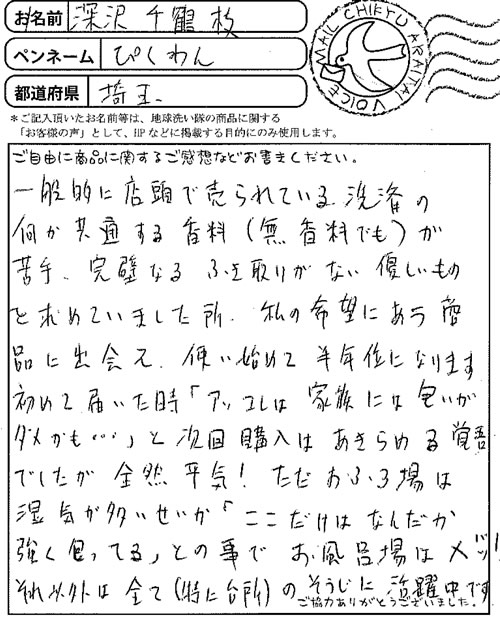 お名前 深沢 千鶴枝
ペンネーム ぴくわん
都道府県 埼玉
MAIL CHIKYU ARAITAI VOICE
＊ご記入頂いたお名前等は、地球洗い隊の商品に関する
「お客様の声」として、HPなどに掲載する目的にのみ使用します。
ご自由に商品に関するご感想などお書きください。
一般的に店頭で売られている洗済の
何か共通する香料(無香料でも)が
苦手、完璧なる ふき取りがない優しいもの
を求めていました所、私の希望にあう商
品に出会え、使い始めて半年位になります
初めて届いた時「アッコレは家族には匂いが
ダメかも…」と次回購入はあきらめる覚悟
でしたが全然平気！ただおふろ場は
湿気が多いせいか「ここだけはなんだか
強く匂ってる」との事でお風呂場は×ッ!
それ以外は全て(特に台所)のそうじに活躍中です
ご協力ありがとうございました。